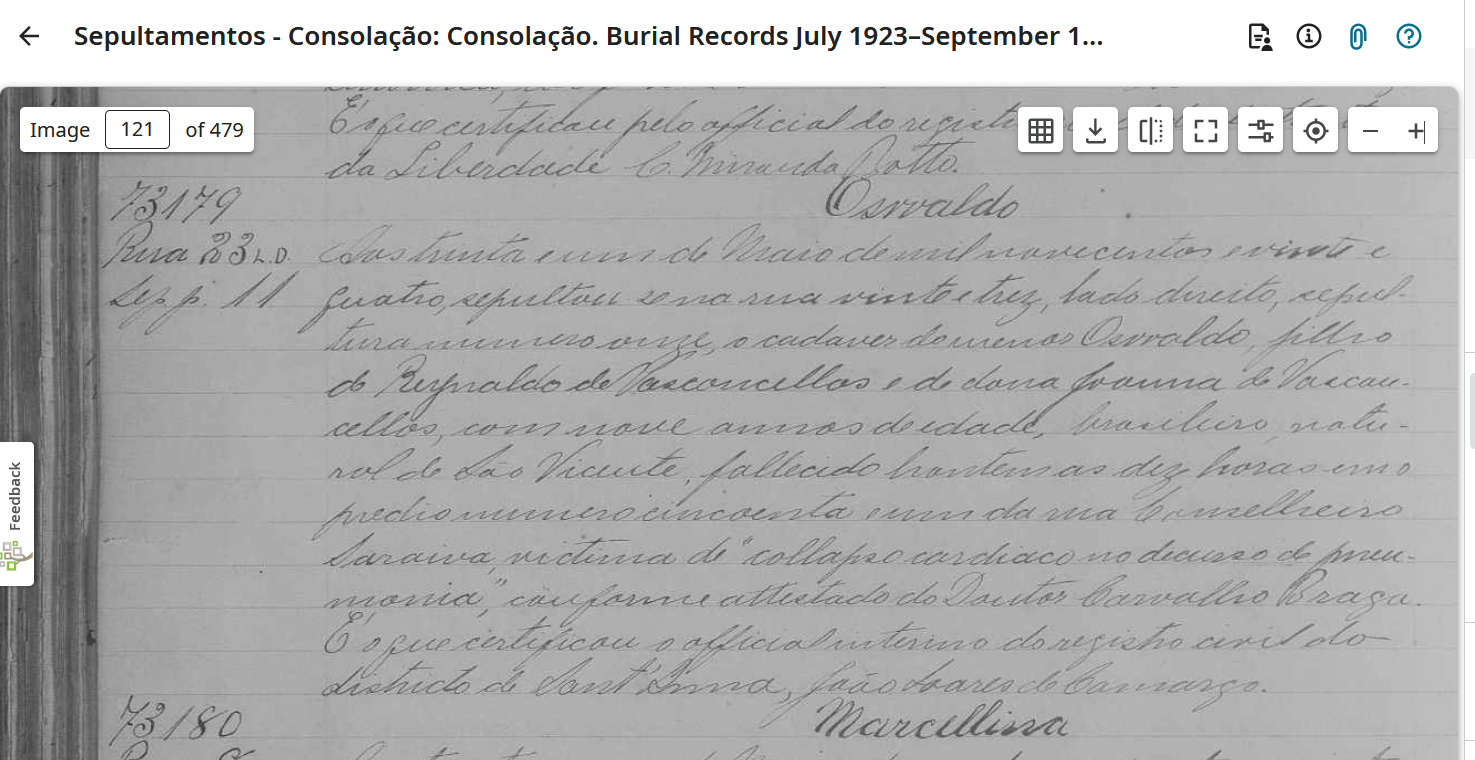 Sepultamentos - Consolação: Consolação. Burial Records July 1923–September 1...
Image 121 of 479
E' o que certificou pelo official do registo
da Liberdade C. Miranda Botto.
73179
Osvaldo
Rua 23 L.D.
Sep p. 11
Aos trinta e um de Maio de mil novecentos e vinte e
quatro, sepultou se na rua vinte e trez, lado direito, sepul-
tura numero onze, o cadaver do menor Osvaldo, filho
de Reynaldo de Vasconcellos e de dona Joanna de Vascon-
cellos, com nove annos de edade, brasileiro, natu-
ral de São Vicente, fallecido hontem as dez horas em o
predio numero cincoenta e um da rua Conselheiro
Saraiva, victima de "collapso cardiaco no decurso de pneu-
monia", conforme attestado do Doutor Carvalho Braga.
E' o que certificou o official interino do registro civil do
districto de Sant'Anna, João Soares de Camargo.
73180
Marcellina
Feedback